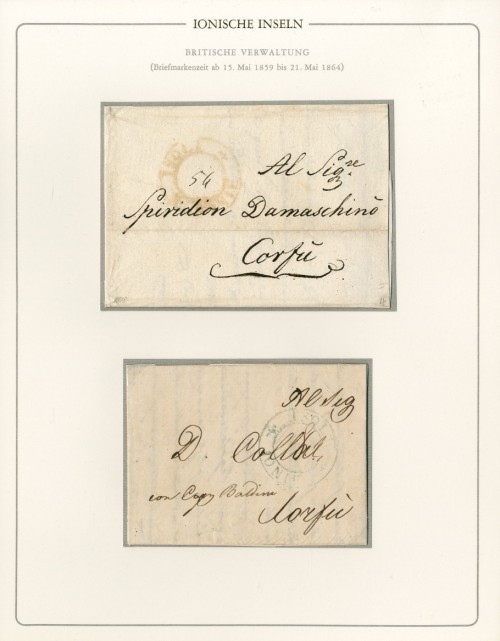 IONISCHE INSELN
BRITISCHE VERWALTUNG
(Briefmarkenzeit ab 15. Mai 1859 bis 21. Mai 1864)
54
Al Sig.re
Spiridion Damaschinò
Corfù
Al Sig
D. Collas
con Cap Baldini
Corfù